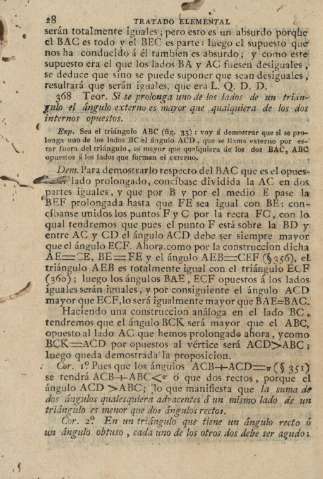 28 TRATADO ELEMENTAL
serán totalmente iguales; pero esto es un absurdo porque
el BAC es todo y el BEC es parte: luego el supuesto que
nos ha conducido á él tambien es absurdo; y como este
supuesto era el que los lados BA y AC fuesen desiguales,
se deduce que sino se puede suponer que sean desiguales,
resultará que serán iguales, que era L. Q. D. D.
368 Teor. Si se prolonga uno de los lados de un trián-
gulo el ángulo externo es mayor que qualquiera de los dos
internos opuestos.
Exp. Sea el triángulo ABC (fig. 35): voy á demostrar que si se pro-
longa uno de los lados BC el ángulo ACD, que se llama externo por es-
tar fuera del triángulo, es mayor que qualquiera de los dos BAC, ABC
opuestos á los lados que forman el externo.
Dem. Para demostrarlo respecto del BAC que es el opues-
lado prolongado, concíbase dividida la AC en dos
partes iguales, y que por B y por el medio E pase la
BEF prolongada hasta que FE sea igual con BE: con-
cíbanse unidos los puntos F y C por la recta FC, con lo
qual tendremos que pues el punto F está sobre la BD y
entre AC y CD el ángulo ACD debe ser siempre mayor
que el ángulo ECF. Ahora como por la construccion dicha
AE=CE, BE=FE y el ángulo AEB=CEF (§ 356), el
triángulo AEB es totalmente igual con el triángulo ECF
(360); luego los ángulos BAE, ECF opuestos á los lados
iguales serán iguales, y por consiguiente el ángulo ACD
mayor que ECF, lo será igualmente mayor que BAE=BAC.
Haciendo una construccion análoga en el lado BC,
tendremos que el ángulo BCK será mayor que el ABC,
opuesto al lado AC que hemos prolongado ahora, y como
BCK=ACD por opuestos al vértice será ACD>ABC;
luego queda demostrada la proposicion.
Cor. 1.º Pues que los ángulos ACB+ACD=π (§ 351)
se tendrá ACB+ABC<π ó que dos rectos, porque el
ángulo ACD>ABC; lo que manifiesta que la suma de
dos ángulos qualesquiera adyacentes á un mismo lado de un
triángulo es menor que dos ángulos rectos.
Cor. 2.º En un triángulo que tiene un ángulo recto ó
un ángulo obtuso, cada uno de los otros dos debe ser agudo;